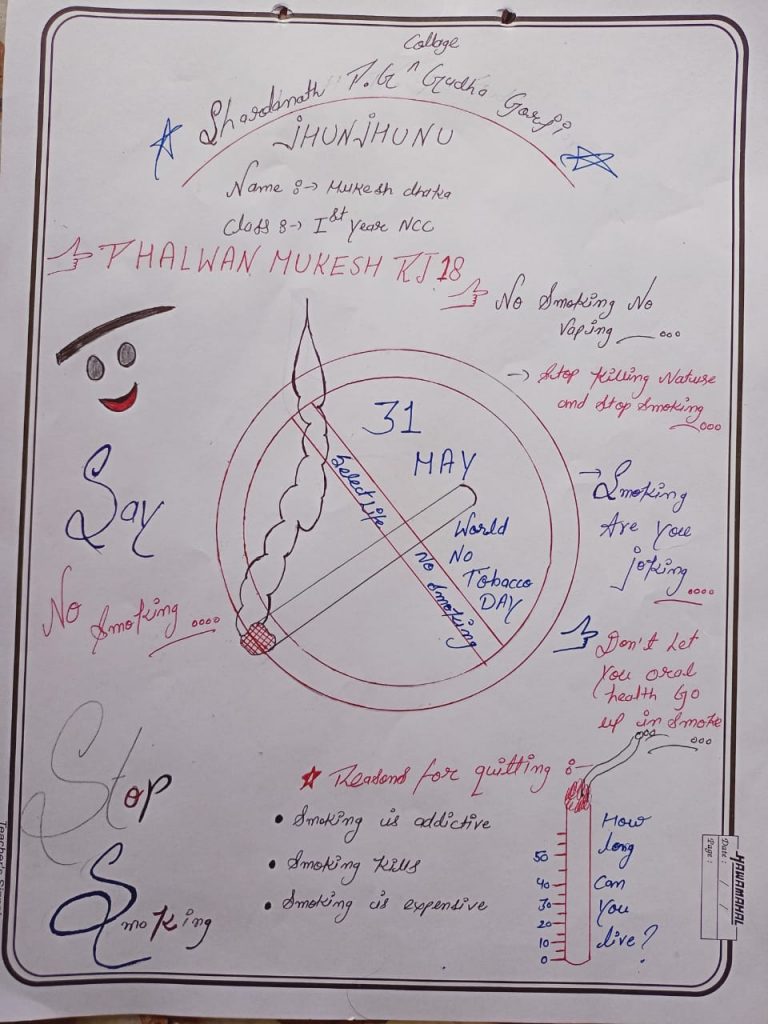 College
Shardanath P.G ^ Gudha Gorji
JHUNJHUNU
Name :-> Mukesh dhaka
Class :-> Ist Year NCC
PHALWAN MUKESH RJ 18
No Smoking No
Vaping
-> Stop Killing Nature
and Stop Smoking
31
MAY
Select Life
No Smoking
World
No
Tobacco
DAY
Say
No Smoking ....
-> Smoking
Are You
joking ....
Don't Let
You oral
health Go
up in Smoke
Stop
Smoking
Reasons for quitting :-
• Smoking is addictive
• Smoking Kills
• Smoking is expensive
How
long
can
You
live?
50
40
30
20
10
0
HAWAMAHAL
Date : / /
Page :